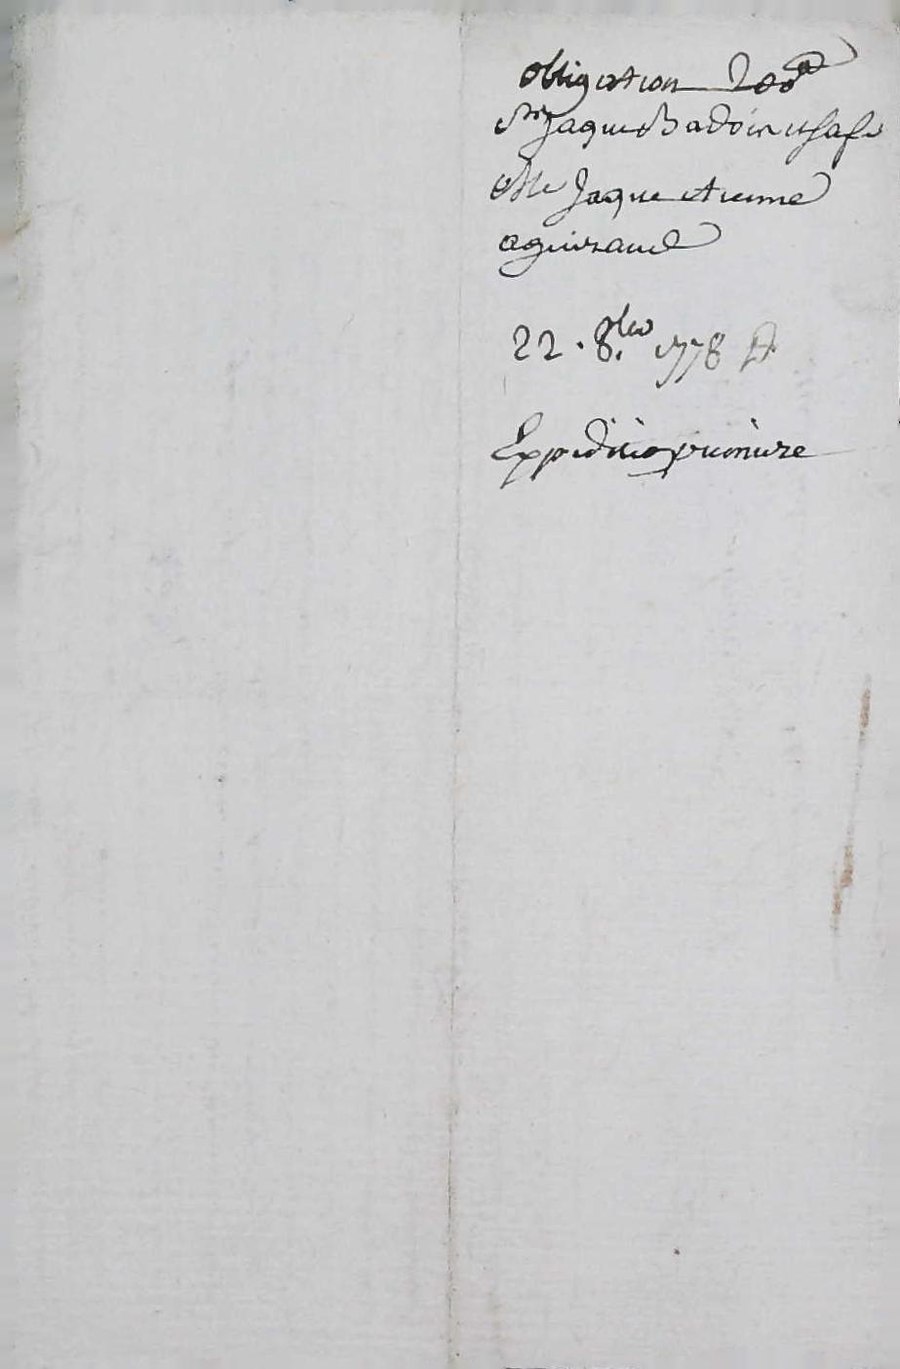 obligation 200ll
Sr Jaques Badoin
Me Jaque etienne
aguiraud
22. 8bre 1778
Expedition premiere